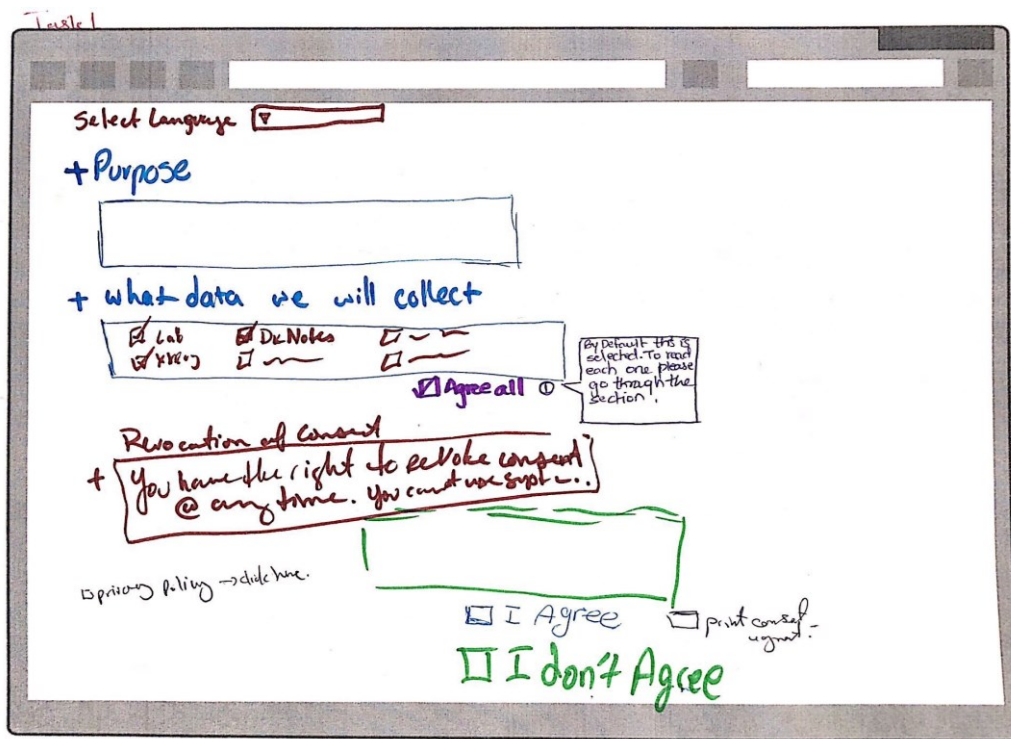 Task 1
Select Language
+ Purpose
+ what data we will collect
Lab Dr Notes
xray
Agree all
By Default this is
selected. To read
each one please
go through the
section.
Revocation of Consent
+ You have the right to revoke consent
@ any time. You cannot use
privacy policy → click here.
I Agree
print consent
I don't Agree